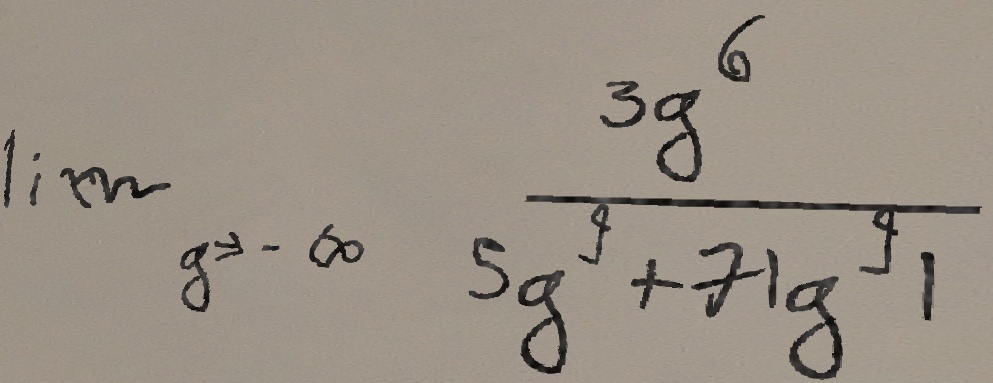 lim_{g \to -\infty} \frac{3g^{6}}{5g^{9} + 7|g^{9}|}